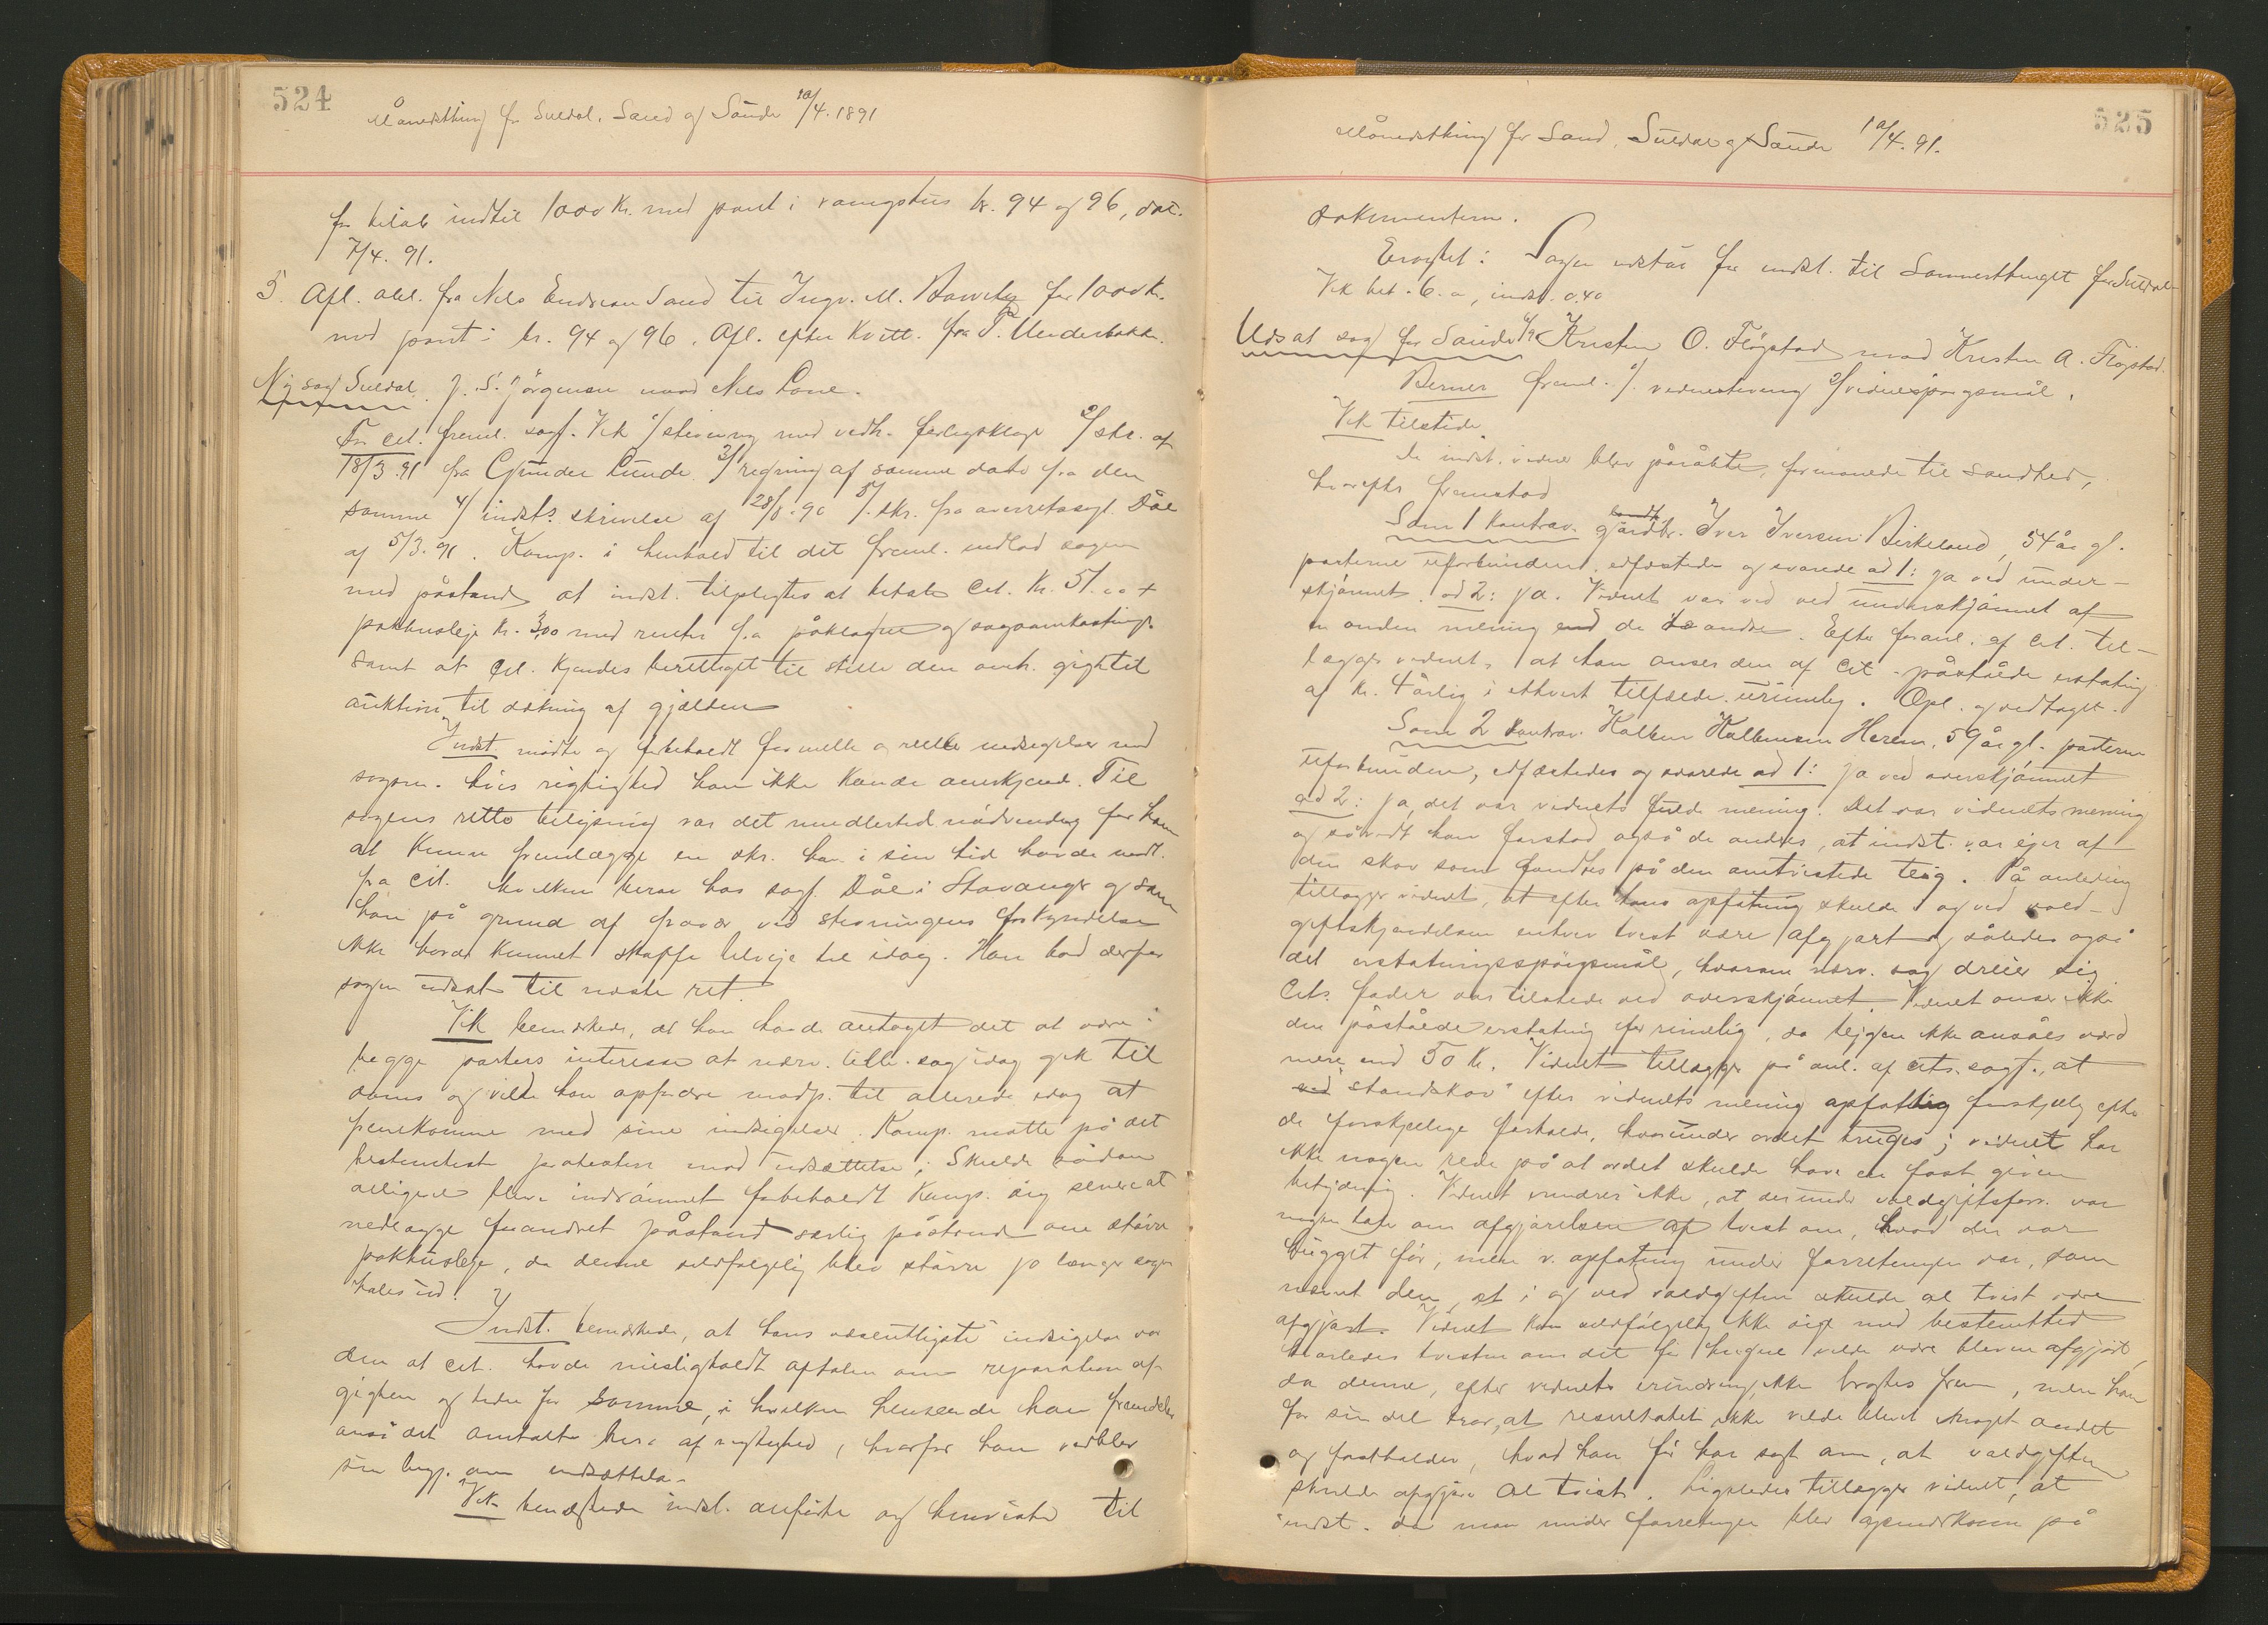 524
Månedsthing for Suldal, Sand og Sauda 10/4. 1891
for beløb indtil 1000 Kr. med pant i vaningshus br. 94 og 96, dat.
7/4. 91.
5. Afl. obl. fra Nils Endresen Sand til Ingv. M. for 1000 Kr.
med pant i br. 94 og 96. Afl. efter Kvitt. fra P. Underbakke.
Ny sag Suldal. J. S. Jørgensen mod Nils Lone.
For cit. freml. sagf. Vik 1/ stevning med vedh. forligsklage 2/ skr. af
18/3. 91 fra Gunder Lunde 3/ regning af samme dato fra den
samme 4/ indst.s skrivelse af 28/8. 90 5/ skr. fra overretssagf. Dåe
af 5/3. 91. Komp. i henhold til det freml. indlod sagen
med påstand at indst. tilpligtes at betale cit. Kr. 51.00 +
pakhusleje Kr. 3,00 med renter fra påklagen og sagsomkostninger
samt at cit. kjendes berettiget til stille den omh. gig til
auktion til dækning af gjælden
Indst. mødte og forbeholdt formelle og reelle indsigelser mod
sagen. hvis rigtighed han ikke kunde anerkjende. Til
sagens rette belysning var det imidlertid nødvendig for ham
at kunne fremlægge en skr. han i sin tid havde modt.
fra cit. hvilken beror hos sagf. Dåe i Stavanger og som
han på grund af fravær ved stevningens forkyndelse
ikke havde kunnet skaffe tilveje til idag. Han bad derfor
sagen udsat til næste ret.
Vik bemærkede, at han havde antaget det at være i
begge parters interesse at nærv. lille sag idag gik til
doms og vilde han opfordre modp. til allerede idag at
fremkomme med sine indsigelser. Komp. måtte på det
bestemteste protestere mod udsættelse; Skulde sådan
alligevel blive indrømmet forbeholdt Komp. sig senere at
nedlægge forandret påstand særlig påstand om større
pakhusleje, da denne selvfølgelig blev større jo længer sagen
hales ud.
Indst. bemærkede, at hans væsentligste indsigelse var
den at cit. havde misligholdt aftalen om reparation af
giggen og leden for samme, i hvilken henseende han fremdeles
anså det omtalte brev af vigtighed, hvorfor han vedblev
sin begj. om udsættelse.
Vik benægtede indst. anførte og henviste til
525
Månedsthing for Sand, Suldal og Sauda 10/4. 91.
dokumenterne.
Eragtet: Sagen udstår for indst. til Sommerthinget for Suldal
Vik bet. 6. -, indst. 0.40
Udsat sag for Sauda Kristen O. Fløgstad mod Kristen A. Fløgstad.
Berner freml. 1/ vidnestevning 2/ vidnespørgsmål.
Vik tilstede
De indst. vidner blev påråbte, formanede til sandhed,
hvorefter fremstod
Som 1 kontrav. gårdbr. Iver Iversen Birkeland, 54 år gl.
parterne uforbunden edfæstedes og svarede ad 1: ja ved under-
skjønnet. ad 2: ja. Vidnet var ved ved underskjønnet af
en anden mening end de to andre. Efter foranl. af cit. til-
lægger vidnet, at han anser den af cit. påståede erstatning
af Kr. 4 årlig i ethvert tilfælde urimelig. Opl. og vedtaget.
Som 2 kontrav. Kolben Kolbensen Herem, 59 år gl. parterne
uforbunden, edfæstedes og svarede ad 1: ja ved overskjønnet
ad 2: ja, det var vidnets fulde mening. Det var vidnets mening
og såvidt han forstod også de andres, at indst. var ejer af
den skov som fandtes på den omtvistede teig. På anledning
tillægger vidnet, at efter hans opfatning skulde i og ved vold-
giftskjendelsen enhver tvist være afgjort og således også
det erstatningsspørgsmål, hvorom nærv. sag dreier sig
Cits. fader var tilstede ved overskjønnet. Vidnet anser ikke
den påståede erstatning for rimelig, da teigen ikke ansåes værd
mere end 50 Kr. Vidnet tillægger på anl. af cits. sagf., at
ved "standskov" efter vidnets mening opfattes forskjelig efter
de forskjelige forholde, hvorunder ordet bruges; vidnet har
ikke nogen rede på at ordet skulde have en fast given
betydning. Vidnet mindes ikke, at der under voldgiftsforr. var
nogen tale om afgjørelsen af tvist om, hvad der var
hugget før; men v. opfatning under forretningen var, som
nævnt den, at i og ved voldgiften skulde al tvist være
afgjort. Vidnet kan selvfølgelig ikke sige med bestemthed
hvorledes tvisten om det før hugne vilde være bleven afgjort,
da denne, efter vidnets erindring, ikke bragtes frem, men han
for sin del tror, at resultatet ikke vilde blevet noget andet
og fastholder, hvad han før har sagt om, at voldgiften
skulde afgjøre al tvist. Ligeledes tillægger vidnet, at
indst. da man under forretningen blev opmerksom på